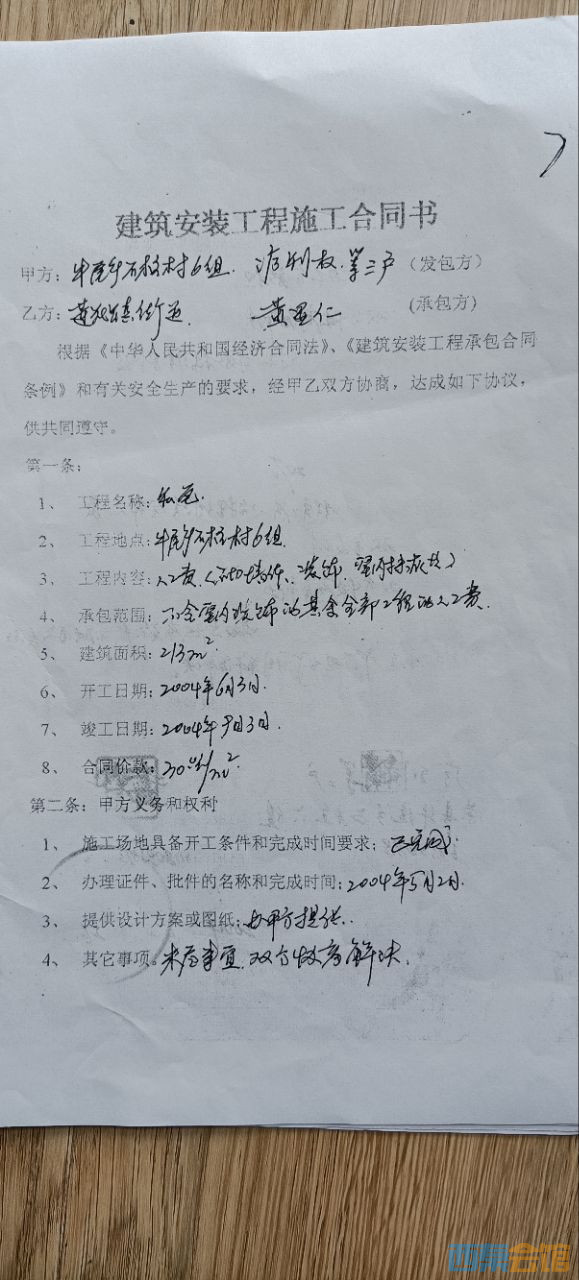 建筑安装工程施工合同书
甲方：牛尾乡石板村6组 第三户（发包方）
乙方：街道 黄 仁 (承包方)
根据《中华人民共和国经济合同法》、《建筑安装工程承包合同
条例》和有关安全生产的要求，经甲乙双方协商，达成如下协议，
供共同遵守。
第一条：
1、 工程名称：私宅
2、 工程地点：牛尾乡石板村6组
3、 工程内容：人工费
4、 承包范围：不含室内装饰的其余全部工程的人工费.
5、 建筑面积：213m²
6、 开工日期：2004年6月3日.
7、 竣工日期：2004年9月3日.
8、 合同价款：/m²
第二条：甲方义务和权利
1、 施工场地具备开工条件和完成时间要求；已完成
2、 办理证件、批件的名称和完成时间：2004年5月2日.
3、 提供设计方案或图纸：由甲方提供.
4、 其它事项。未尽事宜.双方协商解决.
西祠会馆